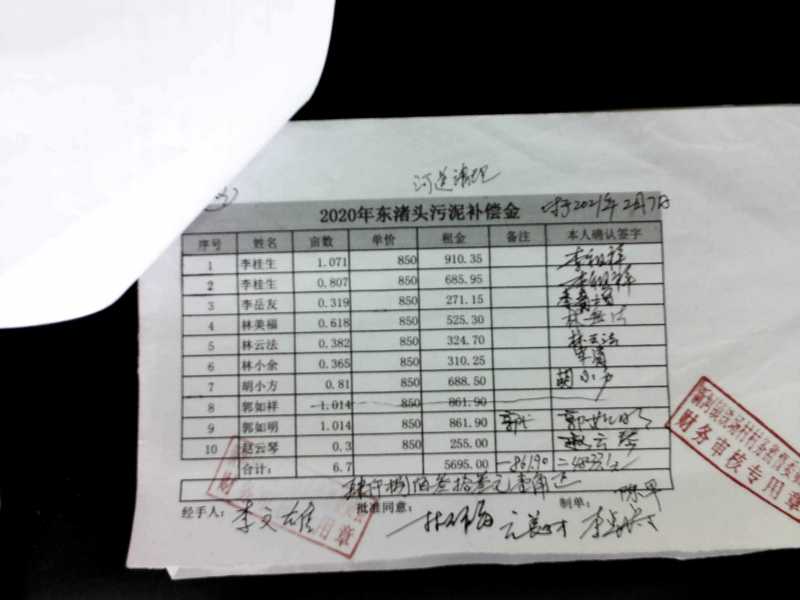 河道清理
2020年东渚头污泥补偿金 2021年2月7日
序号 姓名 亩数 单价 租金 备注 本人确认签字
1 李桂生 1.071 850 910.35
2 李桂生 0.807 850 685.95
3 李岳友 0.319 850 271.15
4 林美福 0.618 850 525.30
5 林云法 0.382 850 324.70 林云法
6 林小余 0.365 850 310.25
7 胡小方 0.81 850 688.50 胡小方
8 郭如祥 1.014 850 861.90
9 郭如明 1.014 850 861.90 郭如明
10 赵云琴 0.3 850 255.00 赵云琴
合计: 6.7 5695.00 -861.90 =4833.1元
肆仟捌佰叁拾叁元壹角
经手人: 李文雄 批准同意: 制单:
财务审核专用章